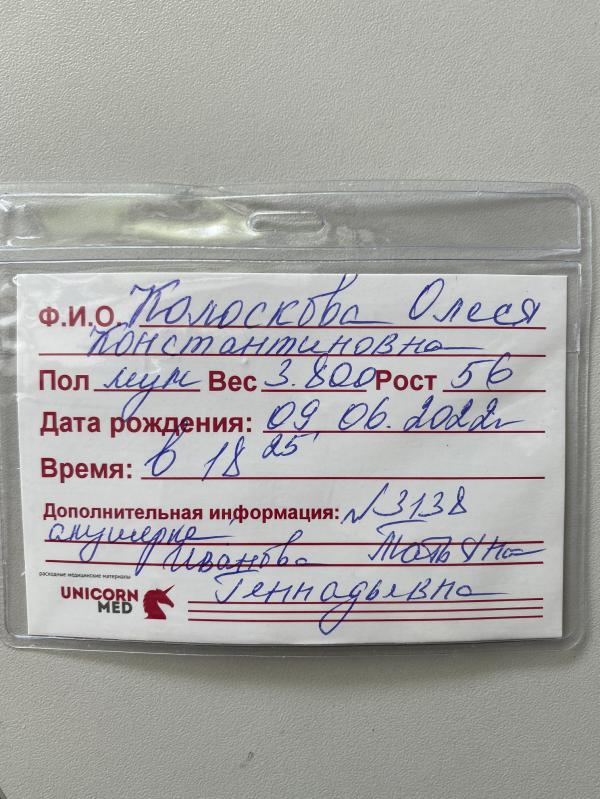 Ф.И.О. Колоскова Олеся
Константиновна
Пол муж Вес 3.800 Рост 56
Дата рождения: 09 06. 2022г
Время: в 18 25'
Дополнительная информация: №3138
акушерка
Иванова Татьяна
расходные медицинские материалы
UNICORN
MED
Геннадьевна